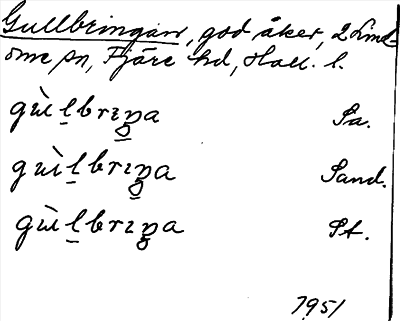 Gullbringan, god åker, 2 Lind-
ome sn, Fjäre hd, Hall. l.
gùlbrıŋa Sa.
gùlbrıŋa Sand.
gùlbrıŋa St.
1951